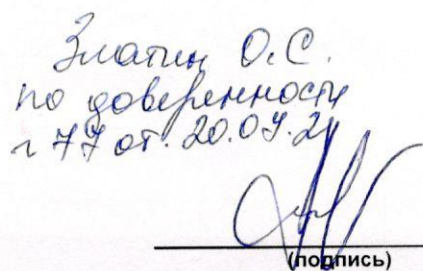 Златин О.С.
по доверенности
г 77 от. 20.09.21
(подпись)